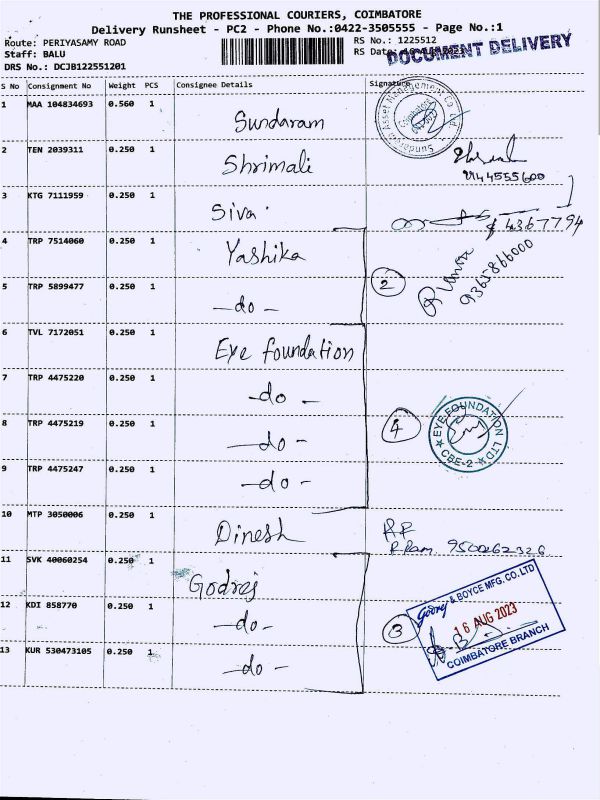 THE PROFESSIONAL COURIERS, COIMBATORE
Delivery Runsheet - PC2 - Phone No.:0422-3505555 - Page No.:1
Route: PERIYASAMY ROAD RS No.: 1225512
Staff: BALU RS Date:
DOCUMENT DELIVERY
DRS No.: DCJB122551201
S No Consignment No Weight PCS Consignee Details Signature
1 MAA 104834693 0.560 1 Sundaram
Sundaram Asset Management Co Ltd
Coimbatore
2 TEN 2039311 0.250 1 Shrimali
3 KTG 7111959 0.250 1 Siva
4 TRP 7514060 0.250 1 Yashika
9365866000
5 TRP 5899477 0.250 1 -do- 2
6 TVL 7172051 0.250 1 Eye foundation
7 TRP 4475220 0.250 1 -do-
8 TRP 4475219 0.250 1 -do- 4
EYE FOUNDATION LTD
CBE-2
9 TRP 4475247 0.250 1 -do-
10 MTP 3050006 0.250 1 Dinesh
11 SVK 40060254 0.250 1 Godrej
12 KDI 858770 0.250 1 -do- 3
Godrej & BOYCE MFG. CO. LTD
16 AUG 2023
COIMBATORE BRANCH
13 KUR 530473105 0.250 1 -do-